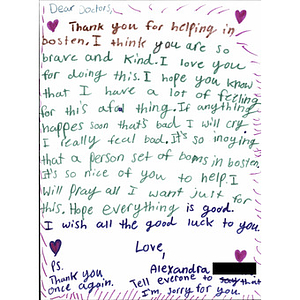 Dear Doctors,
Thank you for helping in
bosten. I think you are so
brave and kind. I love you
for doing this. I hope you know
that I have a lot of feeling
for this afal thing. If anything
happes soon that's bad I will cry.
I really feal bad. It's so inoying
that a person set of boms in boston
It's so nice of you to help. I
will pray all I want just for
this. Hope everything is good.
I wish all the good luck to you.
Love,
Alexandra
PS.
Thank you
once again.
Tell everone to say that
I'm sorry for you